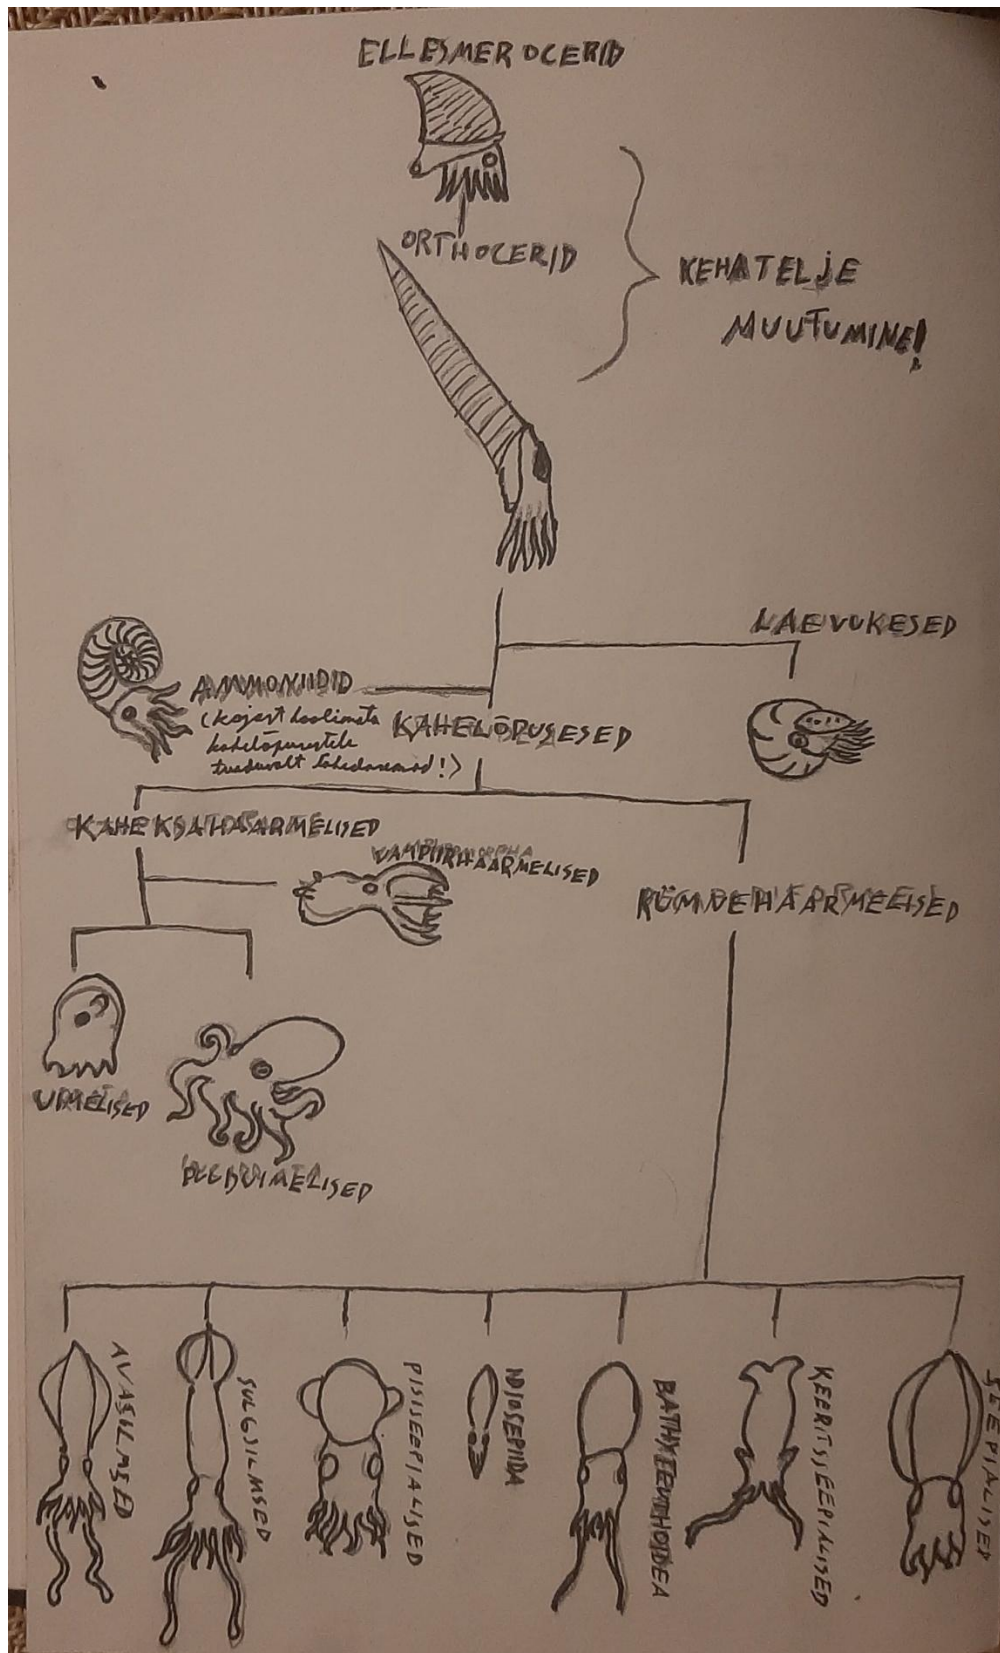 ELLESMEROCERID
ORTHOCERID
KEHATELJE
MUUTUMINE!
LAEVUKESED
AMMONIIDID
(kojast hoolimata
kahelõpusestele
tunduvalt lähedasemad!)
KAHELÕPUSESED
KAHEKSAHAARMELISED
VAMPIIRHAARMELISED
KÜMNEHAARMELISED
UIMELISED
AVASILMSED
SULGSILMSED
PISISEEPIALISED
IDIOSEPIIDA
BATHYTEUTHOIDEA
KEERITSSEEPIALISED
SEEPIALISED